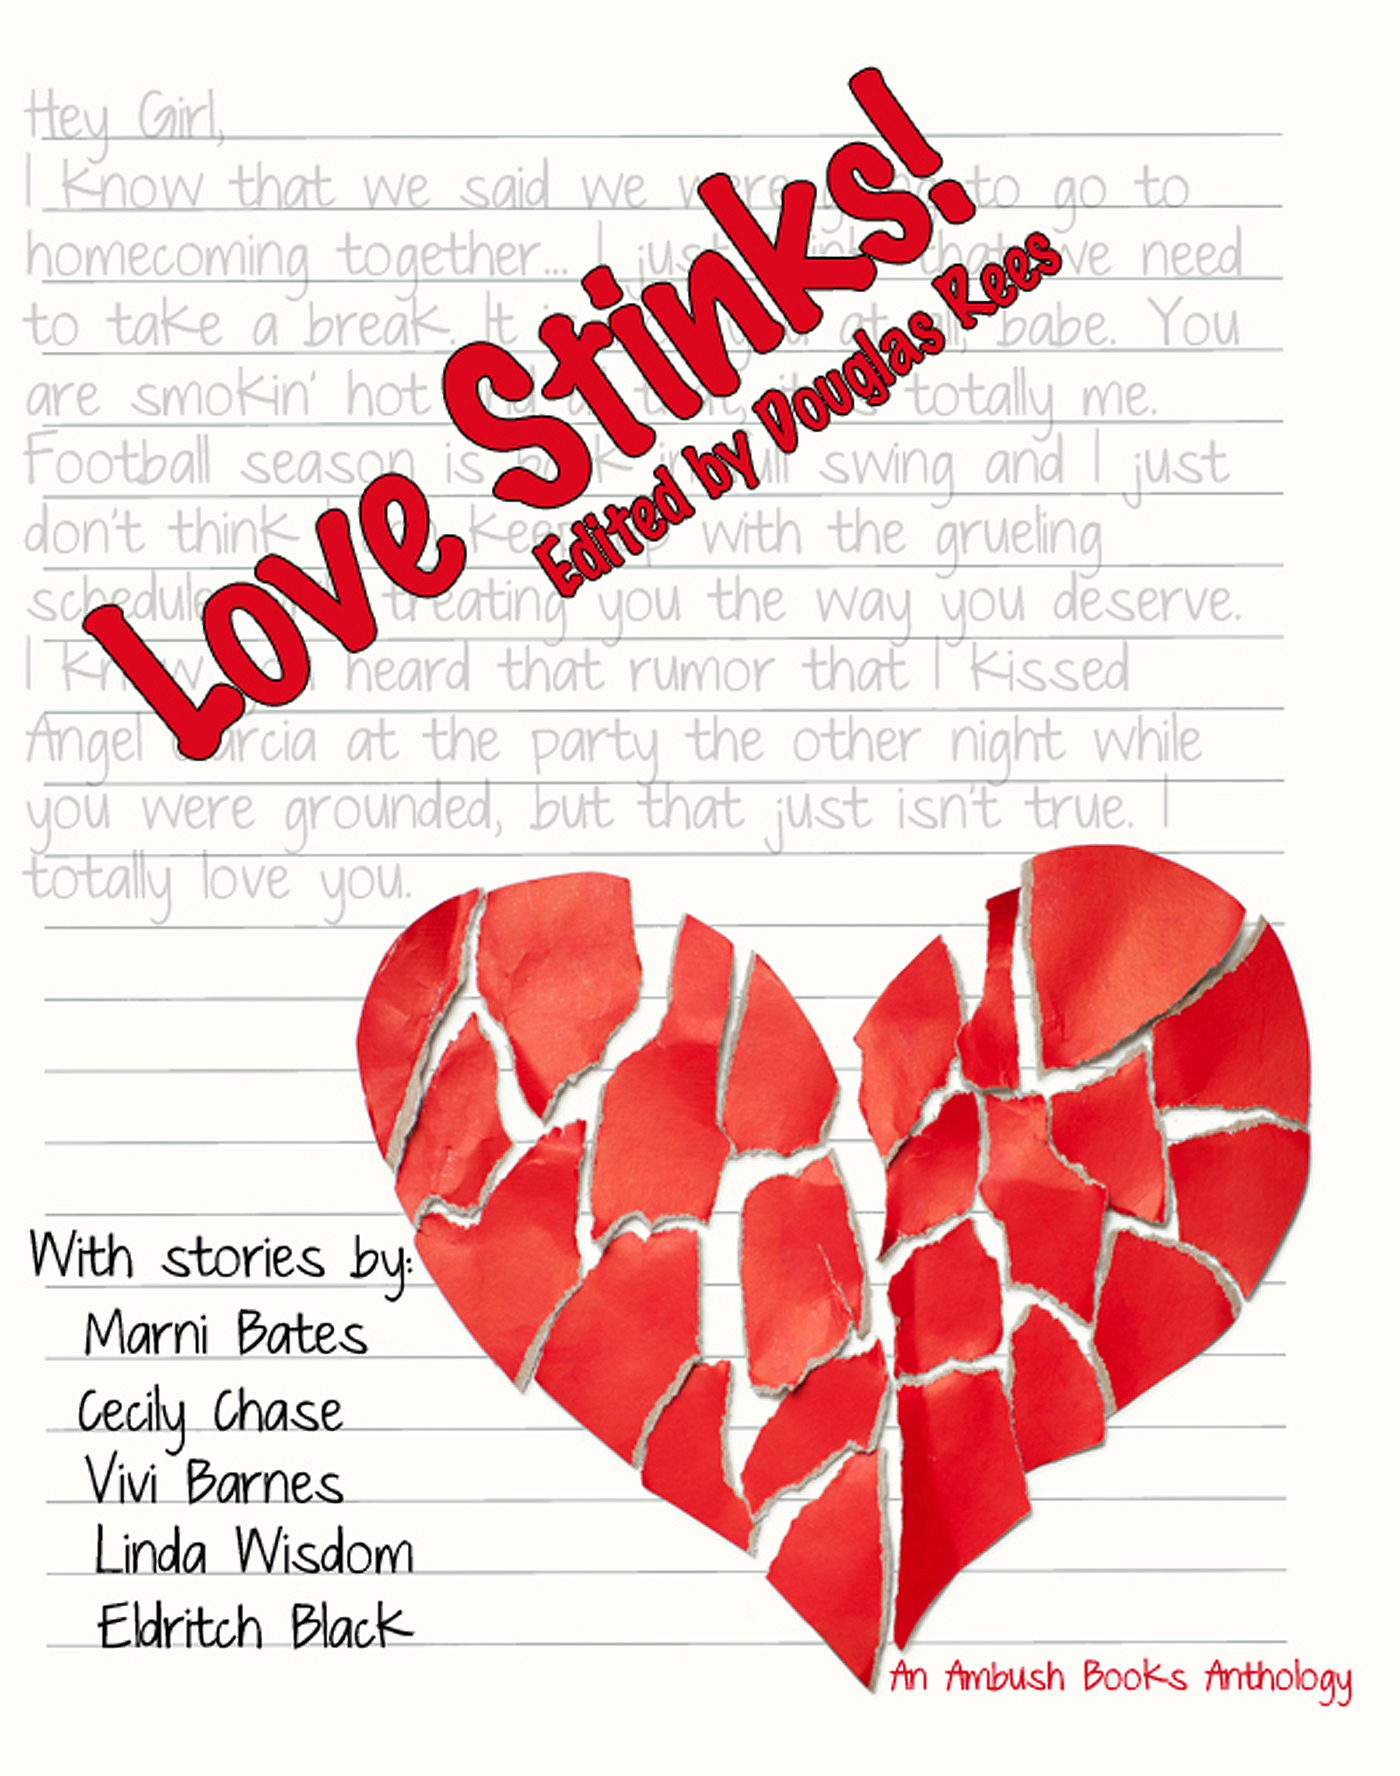 Hey Girl,
I know that we said we were to go to
homecoming together... I just that we need
to take a break. It you at all, babe. You
are smokin' hot totally me.
Football season is back in full swing and I just
don't think keep up with the grueling
schedule treating you the way you deserve.
I know heard that rumor that I kissed
Angel Garcia at the party the other night while
you were grounded, but that just isn't true. I
totally love you.
Love Stinks!
Edited by Douglas Rees
With stories by:
Marni Bates
Cecily Chase
Vivi Barnes
Linda Wisdom
Eldritch Black
An Ambush Books Anthology